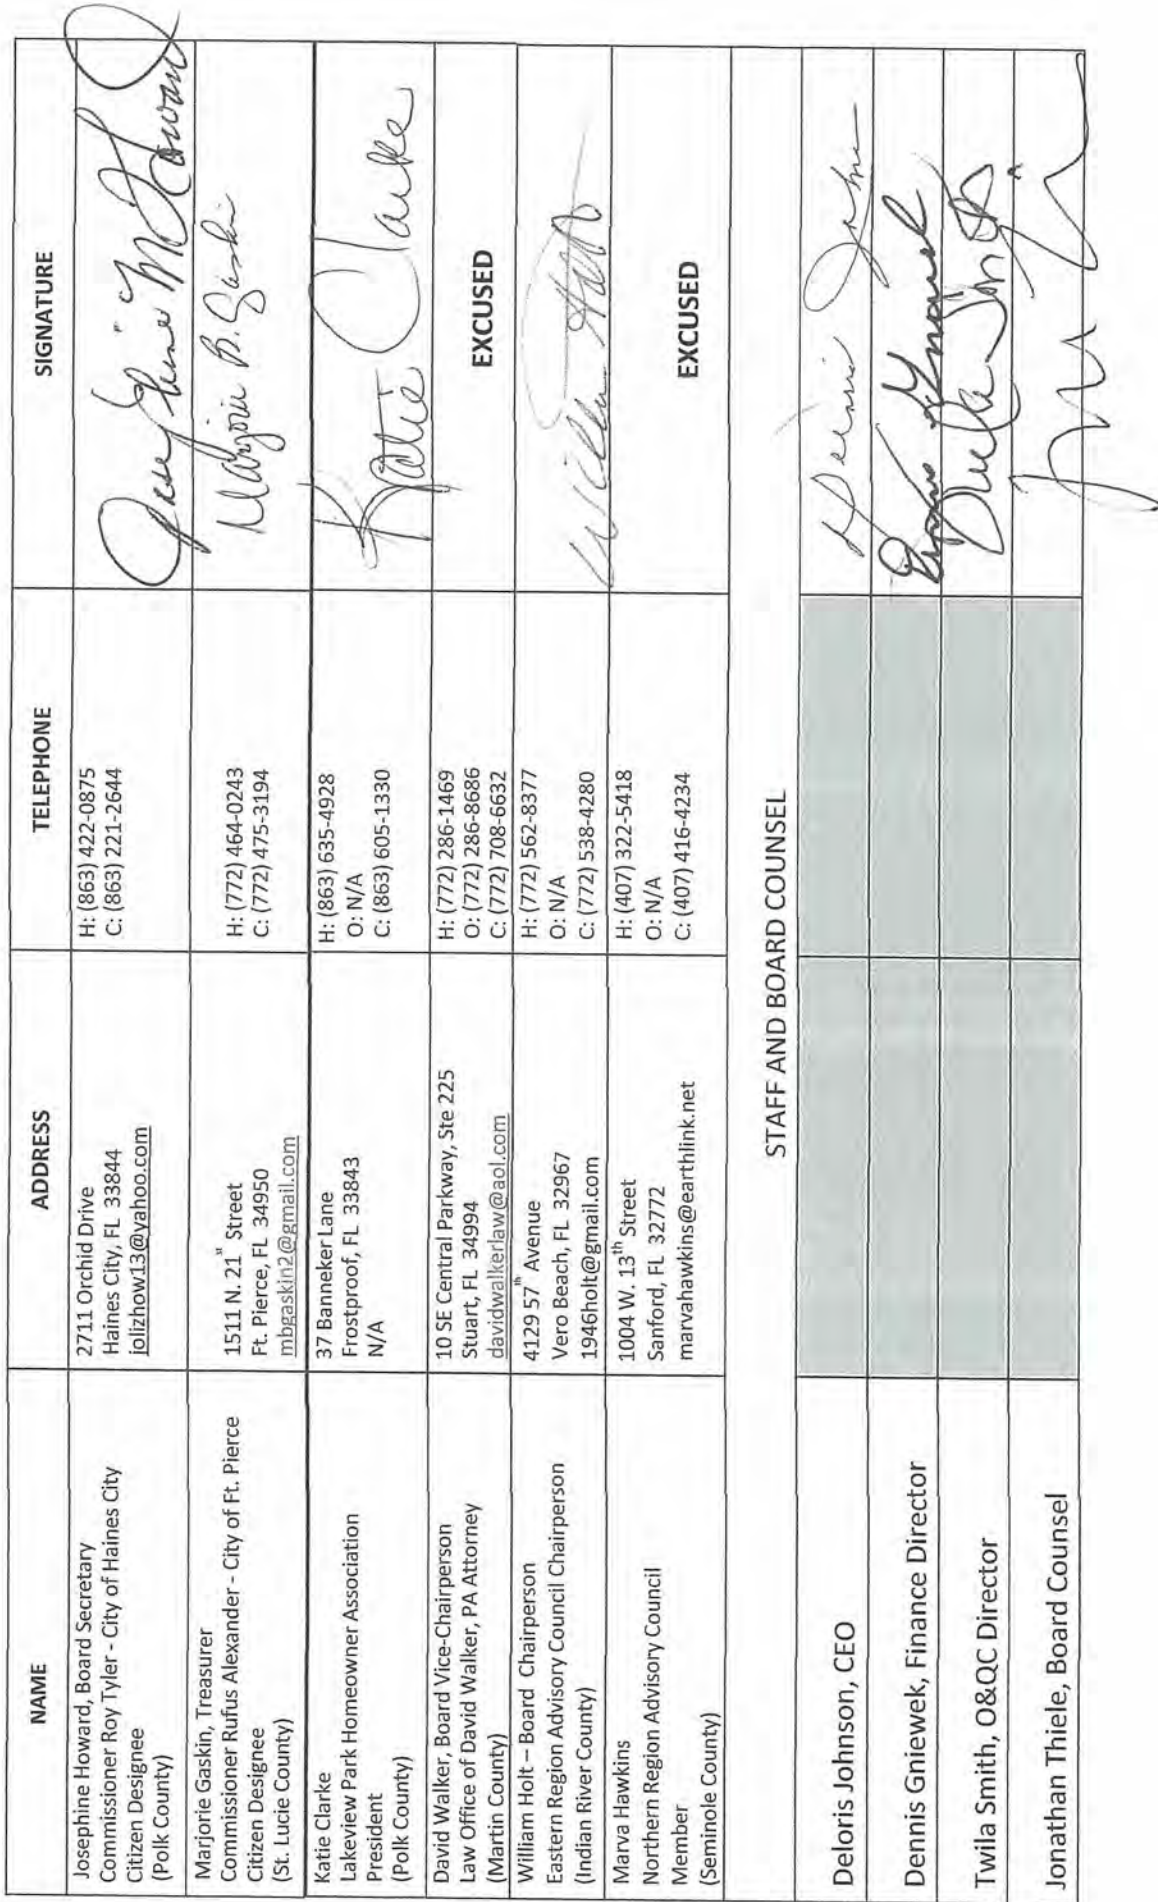 NAME
ADDRESS
TELEPHONE
SIGNATURE
Josephine Howard, Board Secretary
Commissioner Roy Tyler - City of Haines City
Citizen Designee
(Polk County)
2711 Orchid Drive
Haines City, FL 33844
jolizhow13@yahoo.com
H: (863) 422-0875
C: (863) 221-2644
Marjorie Gaskin, Treasurer
Commissioner Rufus Alexander - City of Ft. Pierce
Citizen Designee
(St. Lucie County)
1511 N. 21st Street
Ft. Pierce, FL 34950
mbgaskin2@gmail.com
H: (772) 464-0243
C: (772) 475-3194
Marjorie B. Gaskin
Katie Clarke
Lakeview Park Homeowner Association
President
(Polk County)
37 Banneker Lane
Frostproof, FL 33843
N/A
H: (863) 635-4928
O: N/A
C: (863) 605-1330
Katie Clarke
David Walker, Board Vice-Chairperson
Law Office of David Walker, PA Attorney
(Martin County)
10 SE Central Parkway, Ste 225
Stuart, FL 34994
davidwalkerlaw@aol.com
H: (772) 286-1469
O: (772) 286-8686
C: (772) 708-6632
EXCUSED
William Holt – Board Chairperson
Eastern Region Advisory Council Chairperson
(Indian River County)
4129 57th Avenue
Vero Beach, FL 32967
1946holt@gmail.com
H: (772) 562-8377
O: N/A
C: (772) 538-4280
Marva Hawkins
Northern Region Advisory Council
Member
(Seminole County)
1004 W. 13th Street
Sanford, FL 32772
marvahawkins@earthlink.net
H: (407) 322-5418
O: N/A
C: (407) 416-4234
EXCUSED
STAFF AND BOARD COUNSEL
Deloris Johnson, CEO
Dennis Gniewek, Finance Director
Twilla Smith, O&QC Director
Jonathan Thiele, Board Counsel